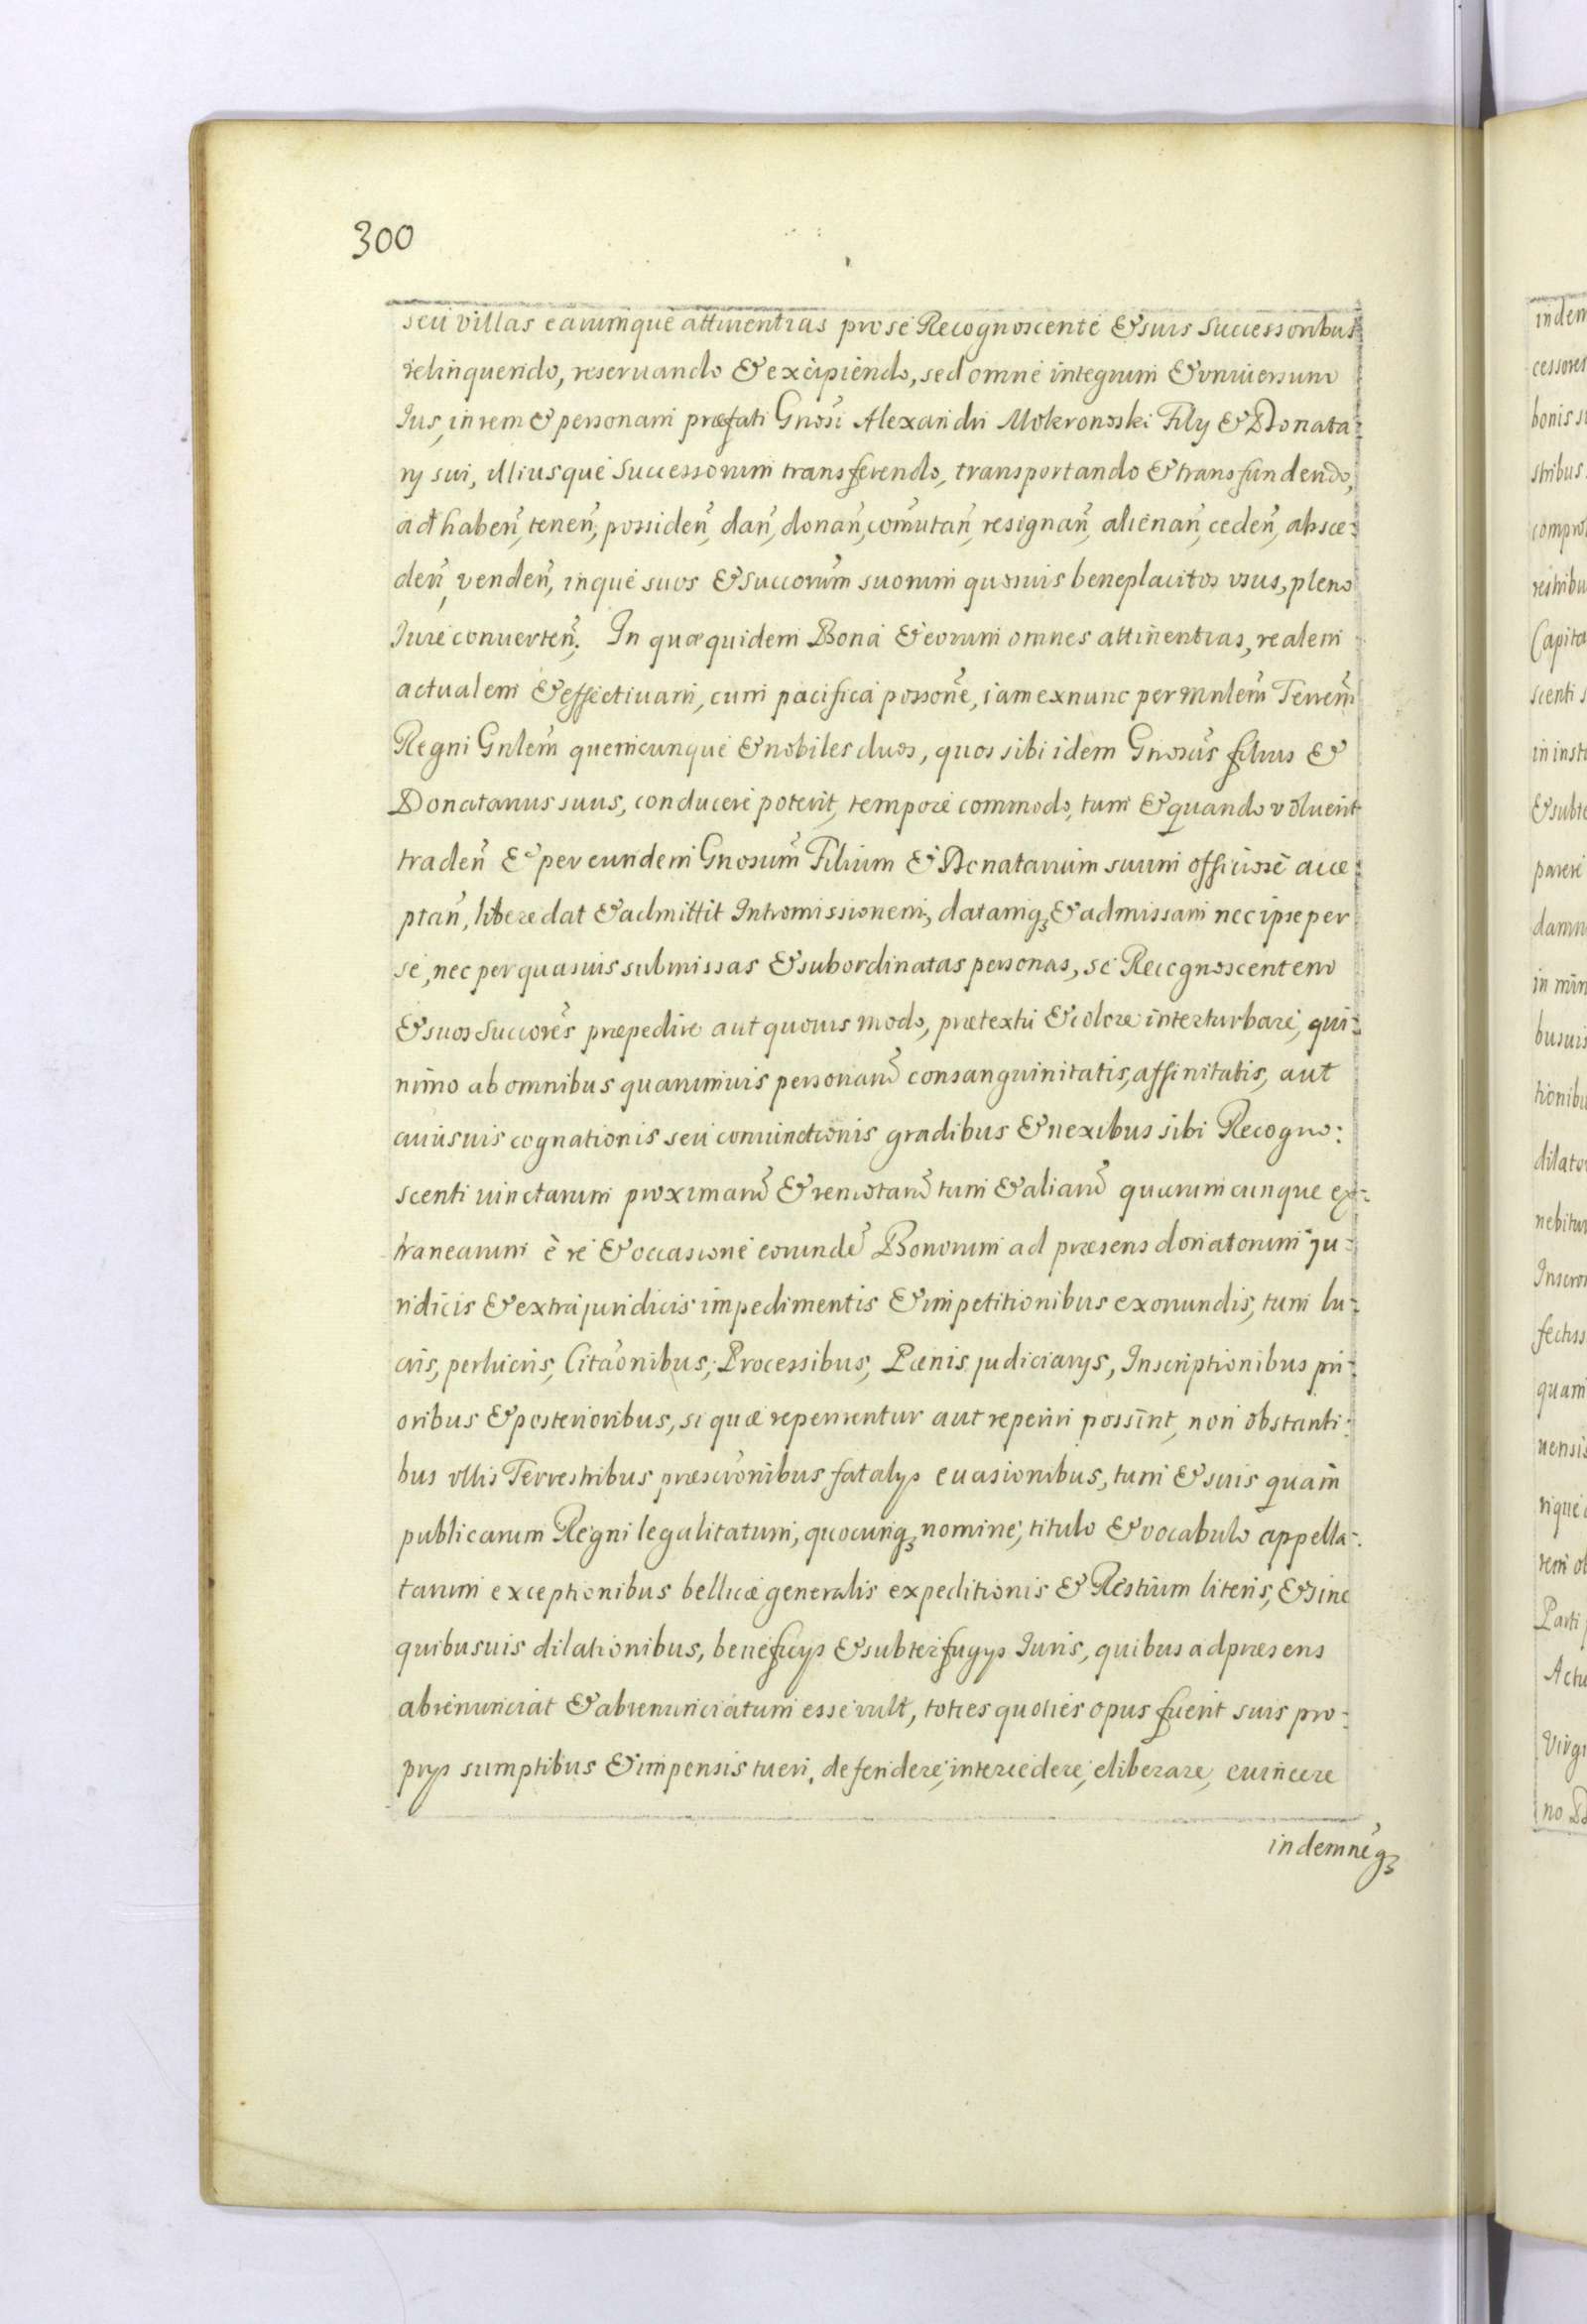 300
seu villas earumque attinentias pro se Recognoscente & suis Successoribus
relinquendo, reseruando & excipiendo, sed omne integrum & vniuersum
Ius, in rem & personam præfati Gnosi Alexandri Mokronoski Filij & Donata:
rij sui, illiusque Successorum transferendo, transportando & transfundendo,
ad habeñ, teneñ, possideñ, dañ, donañ, com̃utañ, resignañ, alienañ, cedeñ, absce:
deñ, vendeñ, inque suos & Succorum̃ suorum quosuis beneplacitos vsus, pleno
Iure conuerteñ. In quæ quidem Bona & eorum omnes attinentias, realem
actualem & effectiuam, cum pacifica possone, iam ex nunc per Mnlem̃ Terrem̃
Regni Gnlem̃ quemcunque & nobiles duos, quos sibi idem Gnosus filius &
Donatarius suus, conducere poterit, tempore commodo, tum & quando voluerit
tradeñ & per eundem Gnosum̃ Filium & Donatarium suum officiose acce:
ptañ, libere dat & admittit Intromissionem, datamq3 & admissam nec ipse per
se, nec per quasuis submissas & subordinatas personas, se Recognoscentem
& suos Succores præpedire aut quouis modo, prætextu & colore interturbare, qui:
nimo ab omnibus quarumuis personaru consanguinitatis, affinitatis, aut
cuiusuis cognationis seu coniunctionis gradibus & nexibus sibi Recogno:
scenti iunctarum proximaru & remotaru tum & aliaru quarumcunque ex:
tranearum è re & occasione eorunde Bonorum ad præsens donatorum ju:
ridicis & extrajuridicis impedimentis & impetitionibus exorundis, tum lu:
cris, perlucris, Citaonibus, Processibus, Pœnis judiciarijs, Inscriptionibus pri:
oribus & posterioribus, si quæ reperirentur aut reperiri possint, non obstanti:
bus vllis Terrestribus præscronibus fatalijs euasionibus, tum & suis quam
publicarum Regni legalitatum, quocunq3 nomine, titulo & vocabulo appella:
tarum exceptionibus bellicæ generalis expeditionis & Restium literis, & sine
quibusuis dilationibus, beneficijs & subterfugijs Iuris, quibus ad præsens
abrenunciat & abrenunciatum esse vult, toties quoties opus fuerit suis pro:
prijs sumptibus & impensis tueri, defendere, intercedere, eliberare, euincere
indemneq3